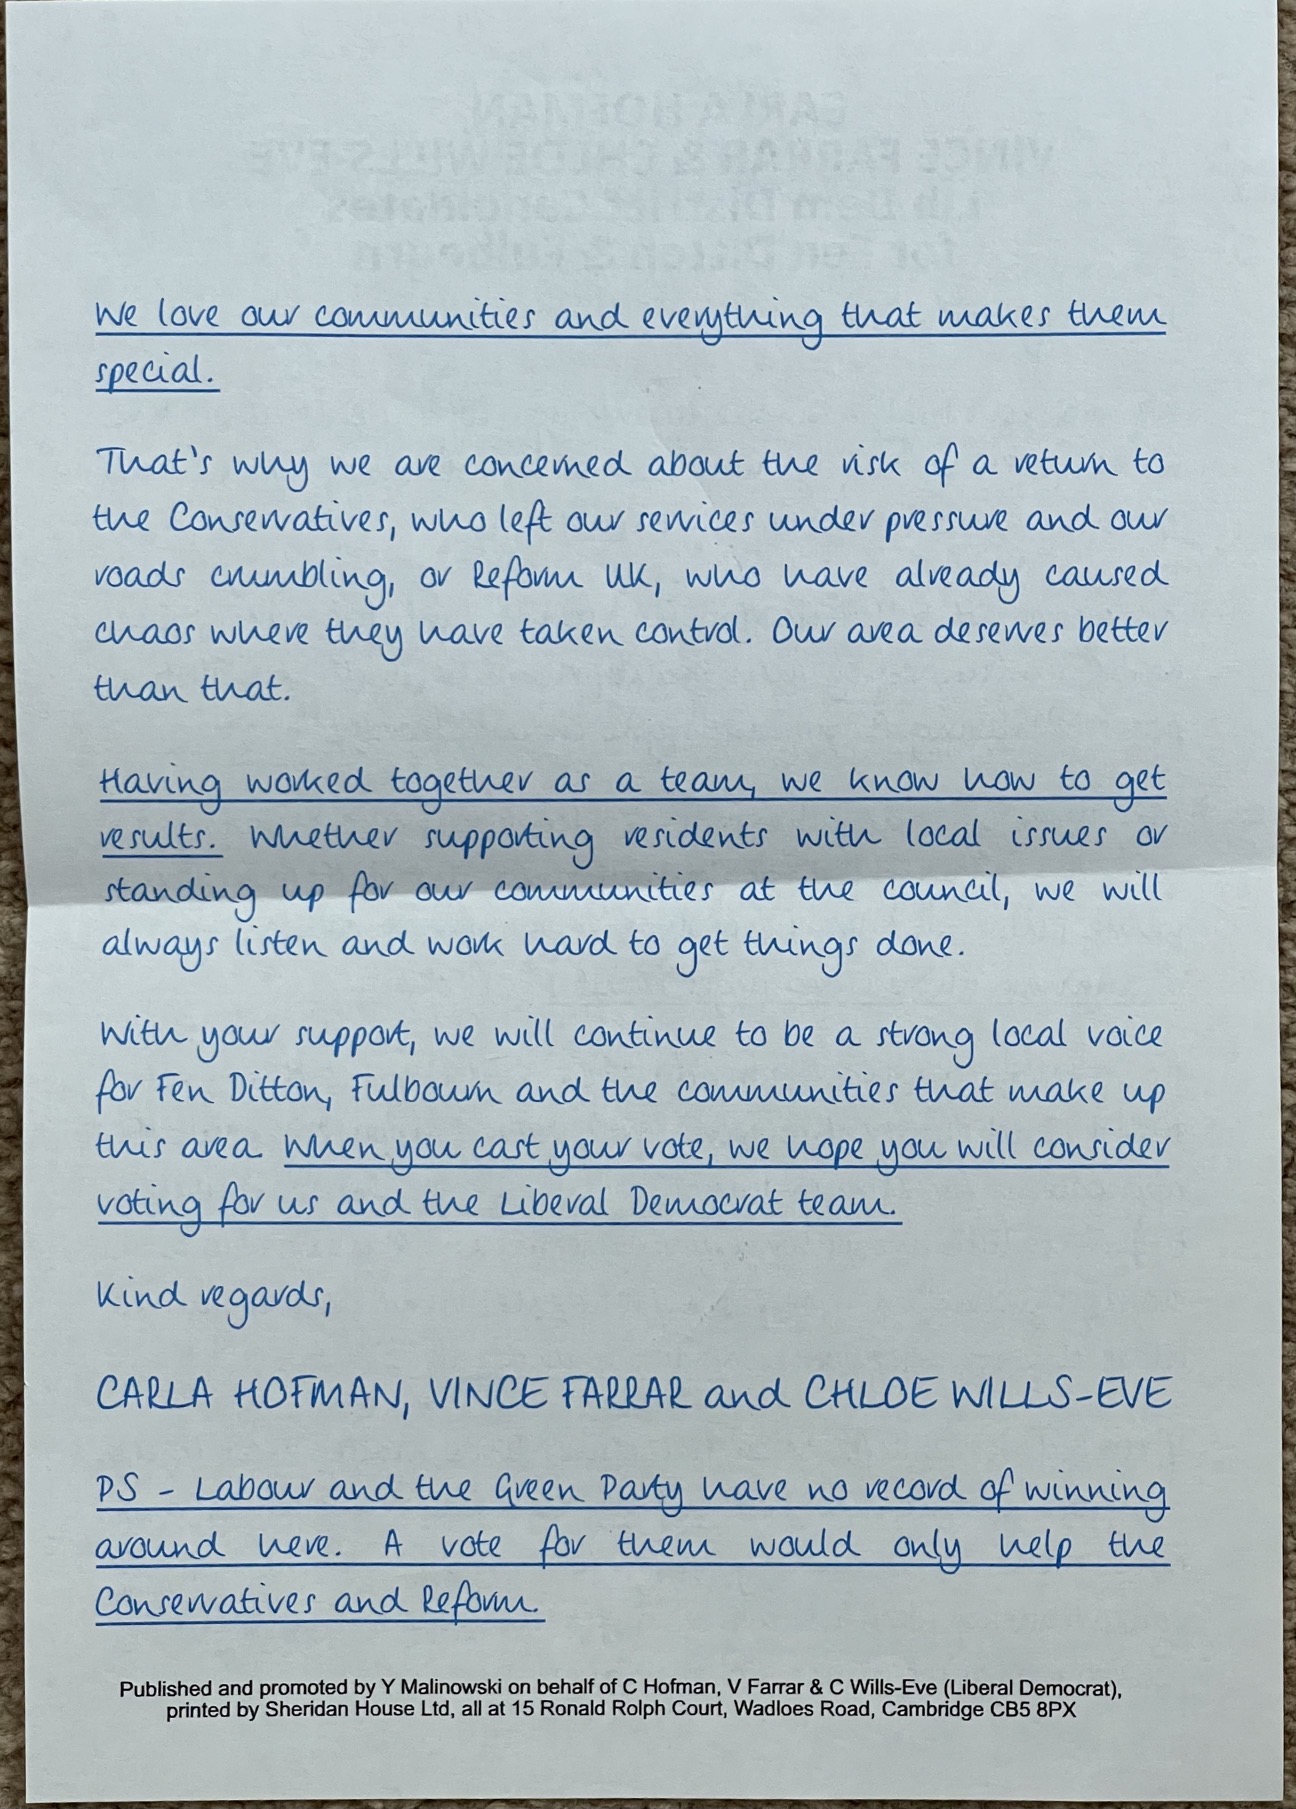 We love our communities and everything that makes them
special.
That's why we are concerned about the risk of a return to
the Conservatives, who left our services under pressure and our
roads crumbling, or Reform UK, who have already caused
chaos where they have taken control. Our area deserves better
than that.
Having worked together as a team, we know how to get
results. Whether supporting residents with local issues or
standing up for our communities at the council, we will
always listen and work hard to get things done.
With your support, we will continue to be a strong local voice
for Fen Ditton, Fulbourn and the communities that make up
this area. When you cast your vote, we hope you will consider
voting for us and the Liberal Democrat team.
Kind regards,
CARLA HOFMAN, VINCE FARRAR and CHLOE WILLS-EVE
PS - Labour and the Green Party have no record of winning
around here. A vote for them would only help the
Conservatives and Reform.
Published and promoted by Y Malinowski on behalf of C Hofman, V Farrar & C Wills-Eve (Liberal Democrat),
printed by Sheridan House Ltd, all at 15 Ronald Rolph Court, Wadloes Road, Cambridge CB5 8PX